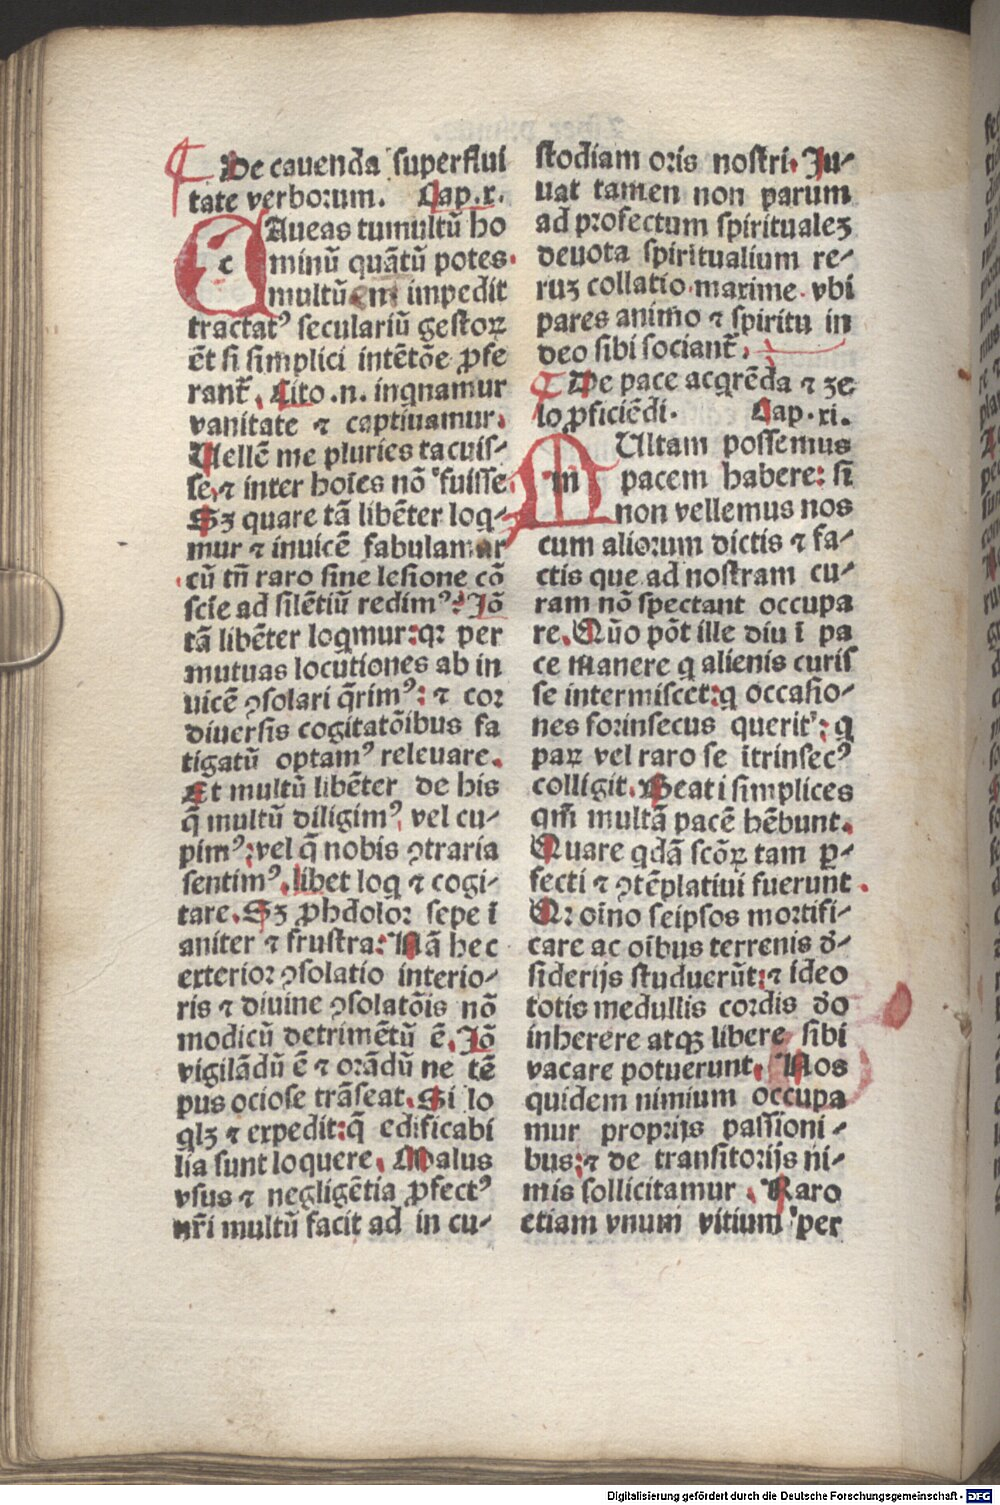 ¶ De cauenda superflui
tate verborum. Cap.x.
CAueas tumultū ho
minū quātū potes.
multū .n. impedit
tractatꝰ seculariū gestoꝝ
ēt si simplici intētōe ꝓfe
rant᷑. Cito .n. inqnamur
vanitate ⁊ captiuamur.
Uellē me pluries tacuis-
se, ⁊ inter hoīes nō fuisse
Sꝫ quare tā libēter loq-
mur ⁊ inuicē fabulamur
cū tn̄ raro sine lesione cō
scīe ad silētiū redimꝰ: Iō
tā libēter loqmur: qꝛ per
mutuas locutiones ab in
uicē ꝯsolari q̄rimꝰ: ⁊ cor
diuersis cogitatōibus fa
tigatū optamꝰ releuare.
Et multū libēter de his
q̄ multū diligimꝰ, vel cu-
pimꝰ: vel q̄ nobis ꝯtraria
sentimꝰ, libet loq ⁊ cogi-
tare. Sꝫ ꝓhdolor sepe ī
aniter ⁊ frustra: Nā hec
exterior ꝯsolatio interio-
ris ⁊ diuine ꝯsolatōis nō
modicū detrimētū ē. Iō
vigilādū ē ⁊ orādū ne tē
pus ociose trāseat. Si lo
qlꝫ ⁊ expedit: q̄ edificabi
lia sunt loquere. Malus
vsus ⁊ negligētia ꝓfectꝰ
nr̄i multū facit ad in cu-
stodiam oris nostri. Iu-
uat tamen non parum
ad profectum spiritualeꝫ
deuota spiritualium re-
ruꝫ collatio. maxime. vbi
pares animo ⁊ spiritu in
deo sibi sociant᷑.
¶ De pace acqrēda ⁊ ze
lo ꝓficiēdi. Cap.xi.
MUltam possemus
pacem habere: si
non vellemus nos
cum aliorum dictis ⁊ fa-
ctis que ad nostram cu-
ram nō spectant occupa
re. Qūo pōt ille diu ī pa
ce manere q alienis curis
se intermiscet: q occasio-
nes forinsecus querit᷑: q
paꝝ vel raro se ītrinsecꝰ
colligit. Beati simplices
qm̄ multā pacē hēbunt.
Quare qdā scōꝝ tam ꝑ-
fecti ⁊ ꝯtēplatiui fuerunt.
Qꝛ oīno seipsos mortifi-
care ac oībus terrenis d̄-
siderijs studuerūt: ⁊ ideo
totis medullis cordis d̄o
inherere atqꝫ libere sibi
vacare potuerunt. Nos
quidem nimium occupa
mur proprijs passioni-
bus: ⁊ de transitorijs ni-
mis sollicitamur. Raro
etiam vnum vitium per
Digitalisierung gefördert durch die Deutsche Forschungsgemeinschaft - DFG